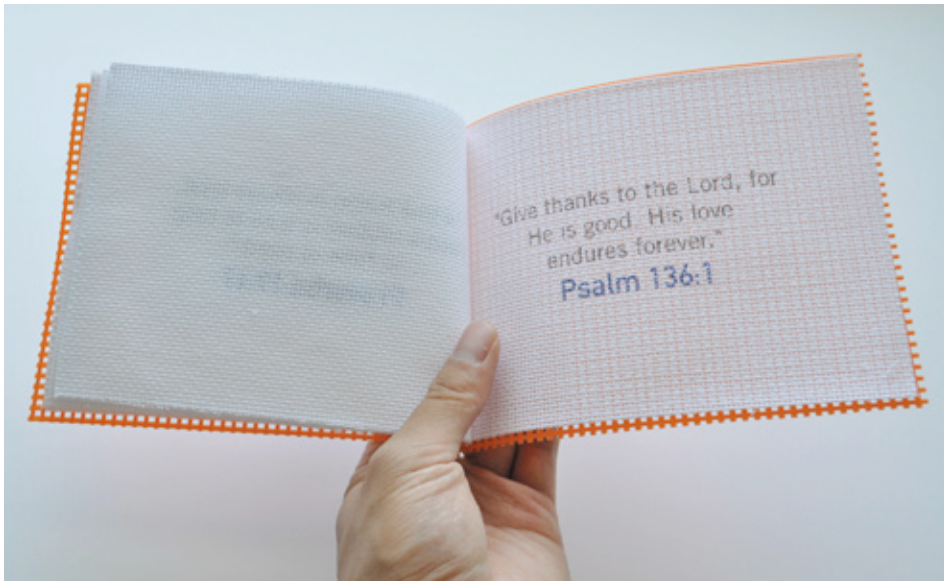 "Give thanks to the Lord, for
He is good His love
endures forever."
Psalm 136:1